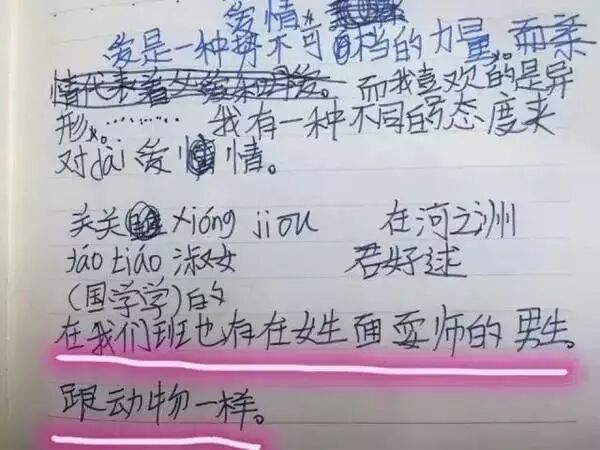 爱情
爱是一种势不可档的力量。而亲
情代表着父爱和母爱。而我喜欢的是异
形。………我有一种不同的态度来
对dài爱情。
关关xióng jiou 在河之洲
táo tiáo淑女 君好逑
(国学学)白勺
在我们班也存在女生面耍师的男生。
跟动物一样。